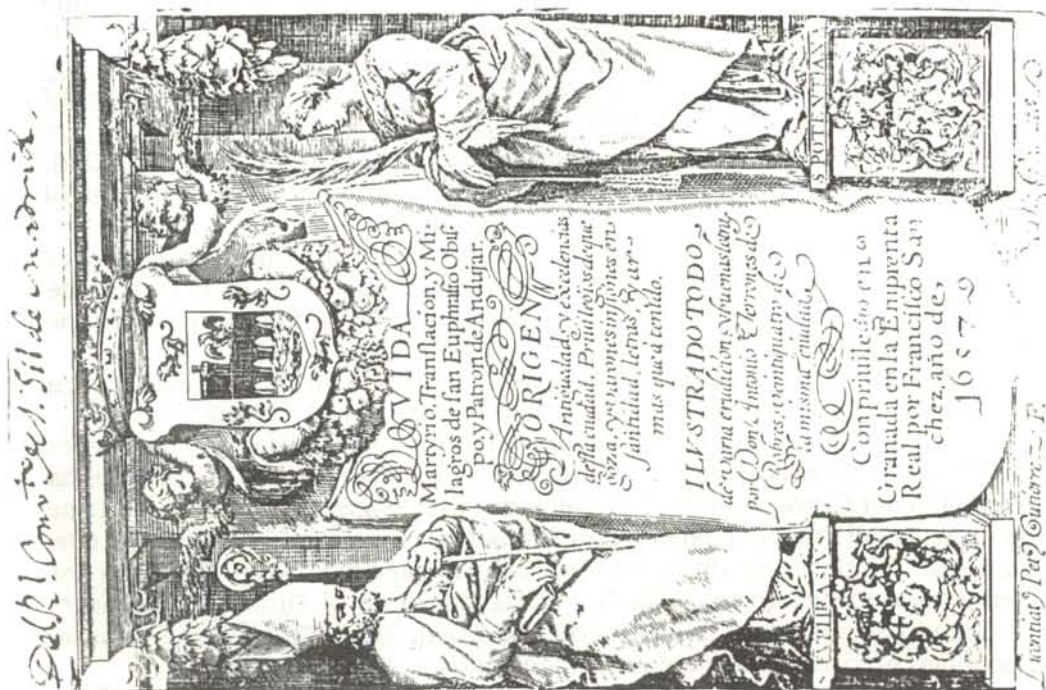 VIDA
Martyrio, Translacion, y Mi-
lagros de san Euphrasio Obis
po, y Patron de Andujar.
ORIGEN
Antiguedad, y excelencias
desta ciudad. Priuilegios de que
goza, y varones insignes en
santidad, letras, y ar-
mas que a tenido.
ILVSTRADO TODO
de varia erudicion, y buenas letras
por Don Antonio Terrones de
Robres, Veintiquatro de
la misma ciudad.
Con priuilegio en
Granada en la Emprenta
Real por Francisco San
chez, año de
1657
S. EVPHRASIVS
S. POTENTIANA